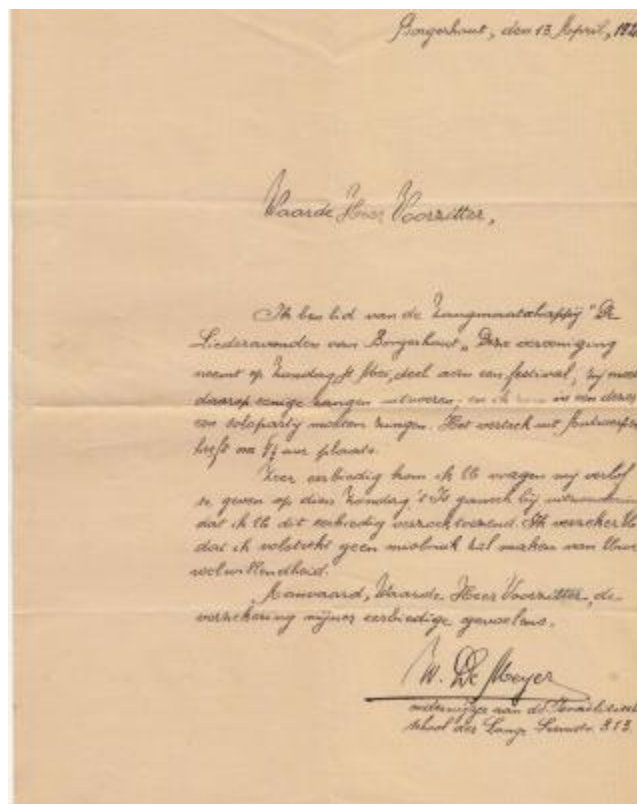 Borgerhout, den 13 April, 192
Waarde Heer Voorzitter,
Ik ben lid van de Zangmaatschappij "De
Liederavonden van Borgerhout„ Deze vereeniging
neemt op Zondag Mei, deel aan een festival, zij moet
daarop eenige zangen uitvoeren en ik in een dezer
een solopartij moeten zingen. Het vertrek uit Antwerpen
heeft om uur plaats.
Zeer eerbiedig kom ik U vragen mij verlof
te geven op dien Zondag 't Is gansch bij
dat ik U dit eerbiedig verzoek toezend. Ik verzeker U
dat ik volstrekt geen misbruik zal maken van Uwe
welwillendheid.
Aanvaard, Waarde Heer Voorzitter, de
verzekering mijner eerbiedige gevoelens.
W. De Meyer
onderwijzer aan de
school der Lange Leemstr. 313